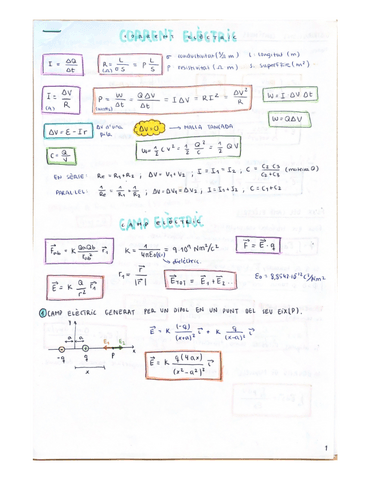 CORRENT ELÈCTRIC
I = ΔQ/Δt
R = L/σS = ρ L/S
σ conductivitat (1/Ω m) L longitud (m)
ρ resistivitat (Ω m) S superfície (m²)
I = ΔV/R
P = W/Δt = QΔV/Δt = IΔV = RI² = ΔV²/R
W = I·ΔV·Δt
W = QΔV
ΔV = E - Ir
ΔV d'una pila
ΔV=0 → MALLA TANCADA
C = Q/V
U = 1/2 CV² = 1/2 Q²/C = 1/2 QV
EN SÈRIE: Re = R1 + R2 ; ΔV = V1 + V2 ; I = I1 = I2 ; C = C1·C2/C1+C2 (mateixa Q)
PARAL·LEL: 1/Re = 1/R1 + 1/R2 ; ΔV = ΔV1 = ΔV2 ; I = I1 + I2 ; C = C1 + C2
CAMP ELÈCTRIC
K = 1/4πE0(r) = 9·10⁹ Nm²/C²
dielèctric.
F = E·q
E = K Q/r² r1
r1 = r/|r|
ETotal = E1 + E2 ...
CAMP ELÈCTRIC GENERAT PER UN DIPOL EN UN PUNT DEL SEU EIX (P).
E = K (-q)/(x+a)² i + K q/(x-a)² i
E = K q(4ax)/(x²-a²)² i
y
a a
E1 E2
-q q P x
x
1